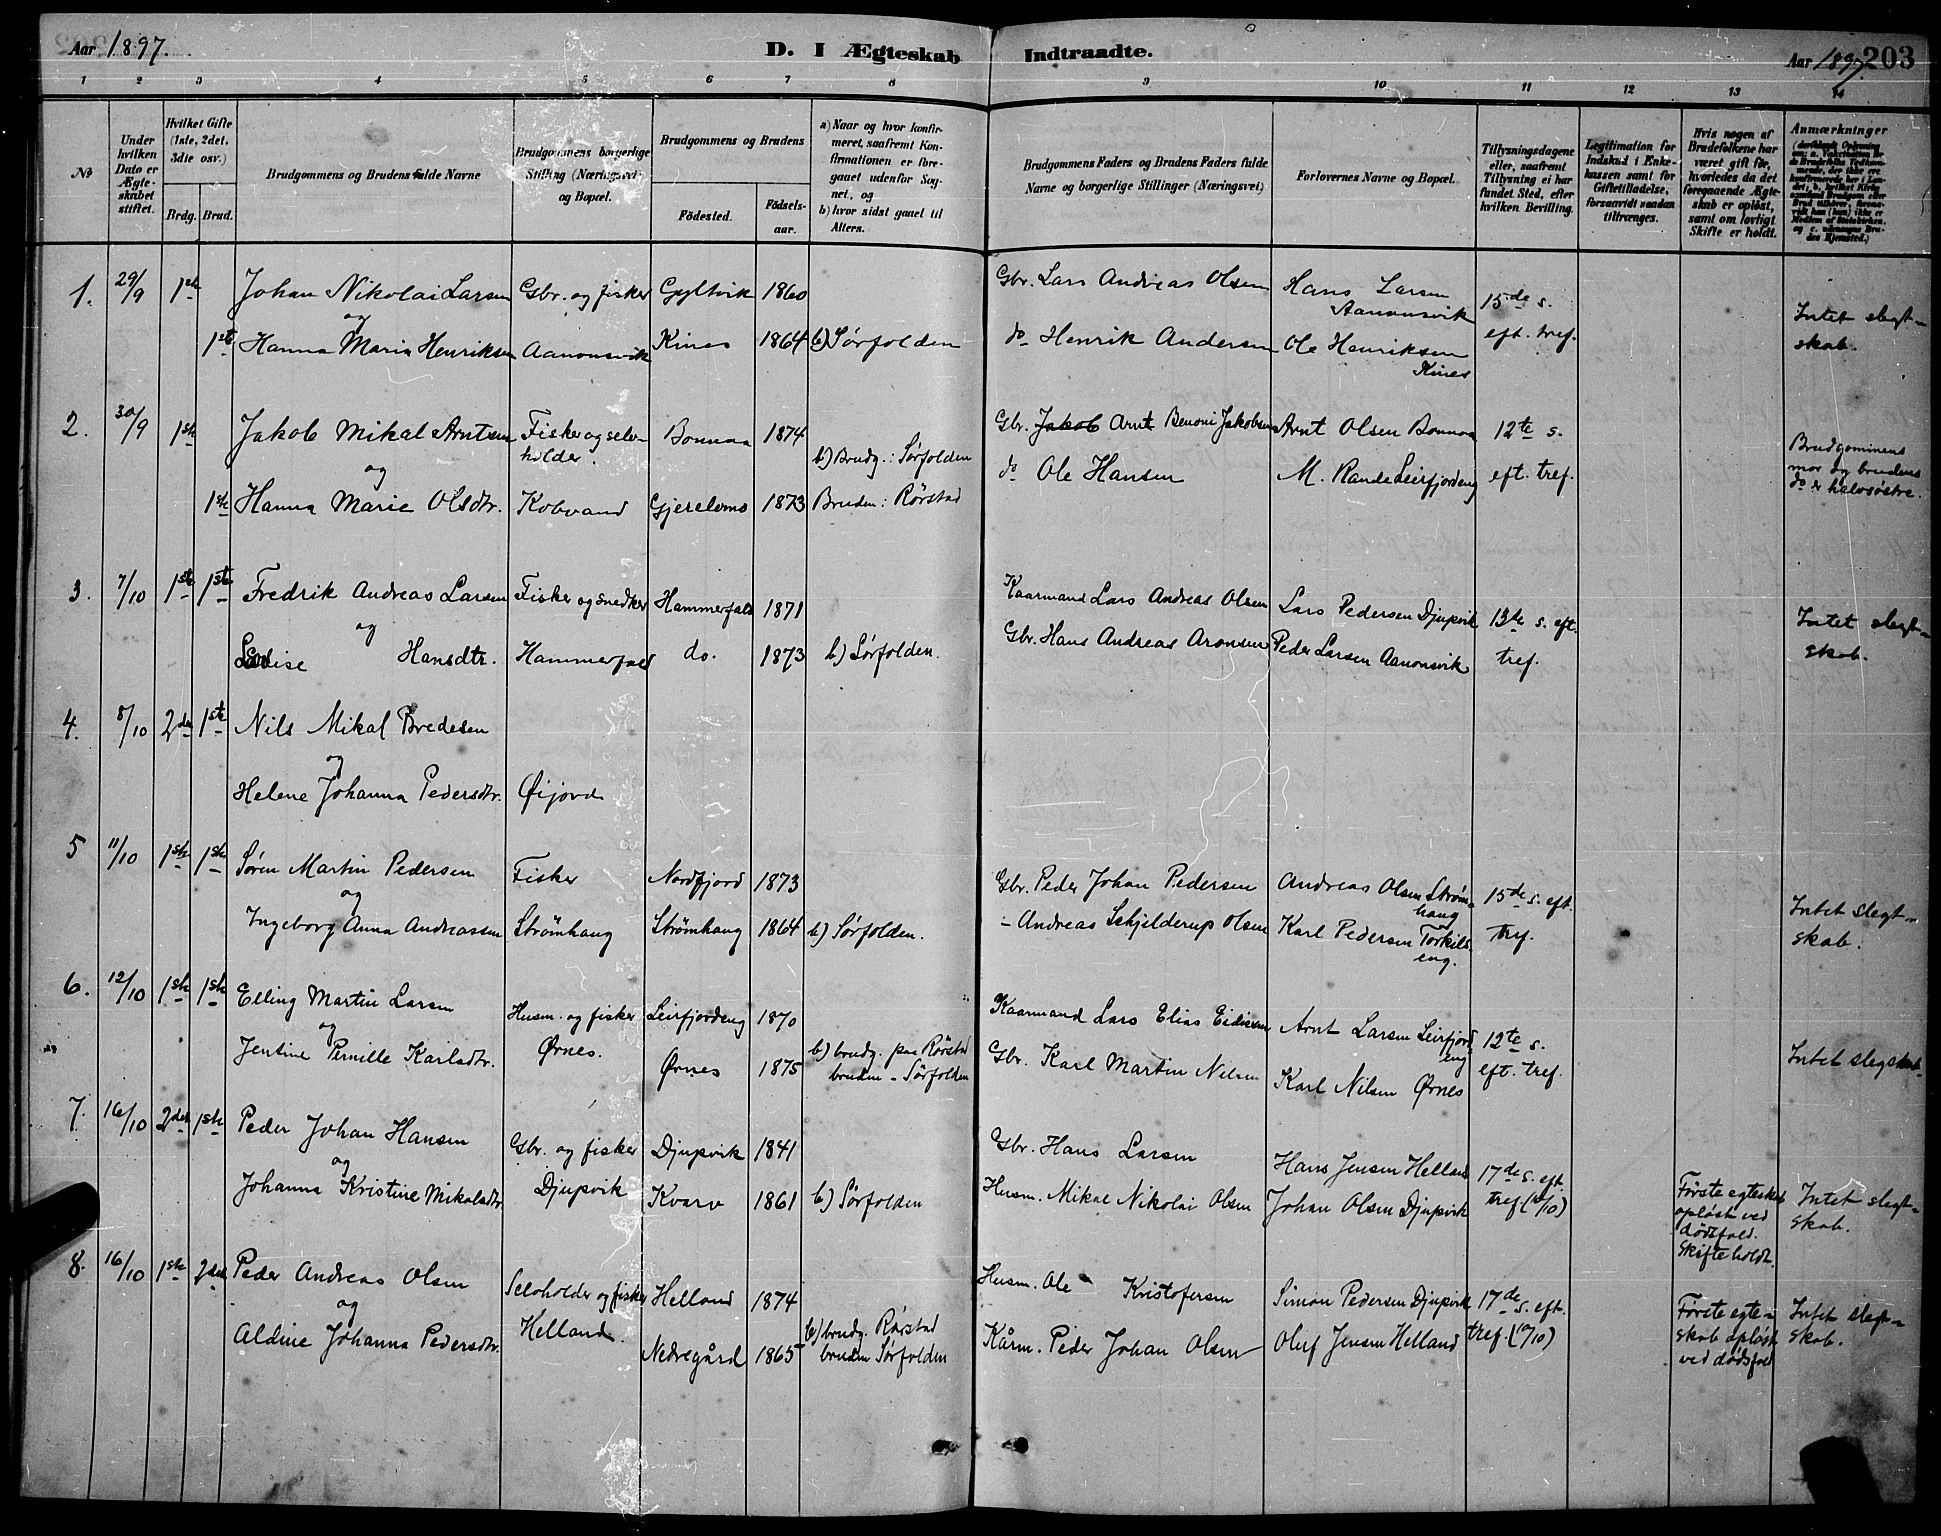 Aar 1897. D. I Ægteskab Indtraadte. Aar 1897. 203
1 2 3 4 5 6 7 8 9 10 11 12 13 14
No
Under hvilken Dato er Ægteskabet stiftet.
Hvilket Gifte (1ste, 2det, 3dte osv.)
Brdg. Brud.
Brudgommens og Brudens fulde Navne
Brudgommens borgerlige Stilling (Næringsvei) og Bopæl.
Brudgommens og Brudens
Fødested. Fødselsaar.
a) Naar og hvor konfirmeret, saafremt Konfirmationen er foregaaet udenfor Sognet, og
b) hvor sidst gaaet til Alters.
Brudgommens Faders og Brudens Faders fulde Navne og borgerlige Stillinger (Næringsvei)
Forlovernes Navne og Bopæl.
Tillysningsdagene eller, saafremt Tillysning ei har fundet Sted, efter hvilken Bevilling.
Legitimation for Indskud i Enkekassen samt for Giftetilladelse, forsaavidt saadan tiltrænges.
Hvis nogen af Brudefolkene har været gift før, hvorledes da det foregaaende Ægteskab er opløst, samt om lovligt Skifte er holdt.
Anmærkninger
1. 29/9 1ste Johan Nikolai Larsen Gbr. og fisker Gyltvik 1860 Gbr. Lars Andreas Olsen Hans Larsen Aanonsvik 15de s.
og
1ste Hanna Maria Henriksen Aanonsvik Kines 1864 b) Sørfolden do Henrik Andersen Ole Henriksen Kines eft. tref. Intet slegtskab.
2. 30/9 1ste Jakob Mikal Arntsen Fisker og selvholder. Bonnaa 1874 b) Brudg.: Sørfolden Gbr. Jakob Arnt Benoni Jakobsen Arnt Olsen Bonnaa 12te s.
og
1ste Hanna Marie Olsdtr. Kobvand Gjerelvmo 1873 Bruden: Rørstad do Ole Hansen M. Rande Leirfjordeng eft. tref. Brudgommens mor og brudens do er halvsøstre.
3. 7/10 1ste 1ste Fredrik Andreas Larsen Fisker og snedker Hammerfald 1871 Kaarmand Lars Andreas Olsen Lars Pedersen Djupvik 13de s. eft.
og
Lovise Hansdtr. Hammerfald do. 1873 b) Sørfolden. Gbr. Hans Andreas Aronsen Peder Larsen Aanonsvik tref. Intet slegtskab.
4. 8/10 2det 1ste Nils Mikal Bredesen
og
Helene Johanna Pedersdtr. Øijord
5 11/10 1ste 1ste Søren Martin Pedersen Fisker Nordfjord 1873 Gbr. Peder Johan Pedersen Andreas Olsen Strømhaug 15de s. eft.
og
Ingeborg Anna Andreassen Strømhaug Strømhaug 1864 b) Sørfolden. - Andreas Schjelderup Olsen Karl Pedersen Torkilseng. tref. Intet slegtskab.
6. 12/10 1ste 1ste Elling Martin Larsen Husm. og fisker Leirfjordeng 1870 Kaarmand Lars Elias Eidissen Arnt Larsen Leirfjordeng 12te s.
og
Jentine Pernille Karlsdtr. Ørnes. Ørnes 1875 b) brudg. paa Rørstad bruden - Sørfolden Gbr. Karl Martin Nilsen Karl Nilsen Ørnes eft. tref. Intet slegskab.
7. 16/10 2det 1ste Peder Johan Hansen Gbr. og fisker Djupvik 1841 Gbr. Hans Larsen Hans Jensen Helland 17de s. eft.
og
Johanna Kristine Mikalsdtr. Djupvik Kvarv 1861 b) Sørfolden Husm. Mikal Nikolai Olsen Johan Olsen Djupvik tref (10/10) Første egteskab opløst ved dødsfald. Skifte holdt. Intet slegtskab.
8. 16/10 1ste 2det Peder Andreas Olsen Selvholder og fisker Helland 1874 Husm. Ole Kristofersen Simon Pedersen Djupvik 17de s. eft.
og
Aldine Johanna Pedersdtr. Helland. Nedregård 1865 b) brudg. Rørstad bruden Sørfolden Kårm. Peder Johan Olsen Oluf Jensen Helland tref. (10/10) Første egteskab opløst ved dødsfald Intet slegtskab.